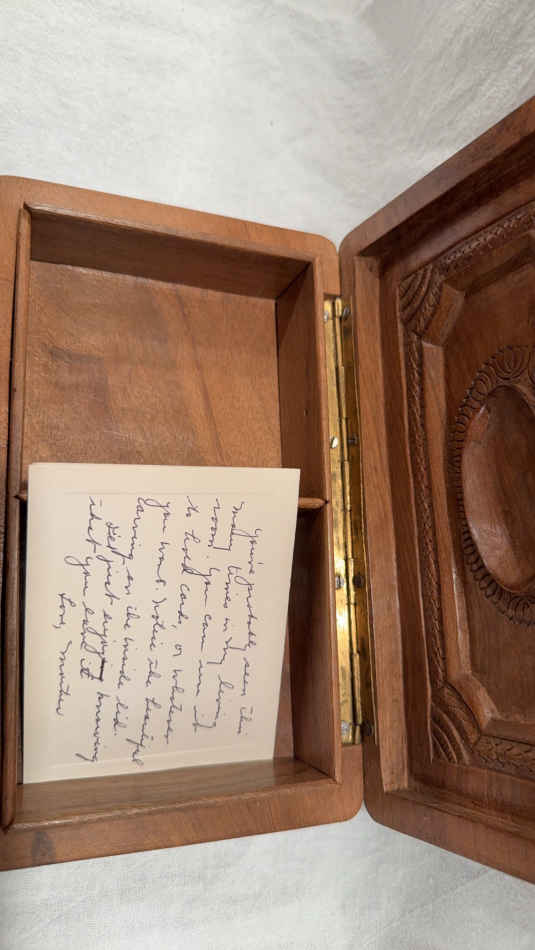 You've probably seen this
many times in my living
room. You can use it
to hold cards, or whatever
you want. Notice the beautiful
carving on the inside lid.
just enjoy knowing
that you it
Love, Mother